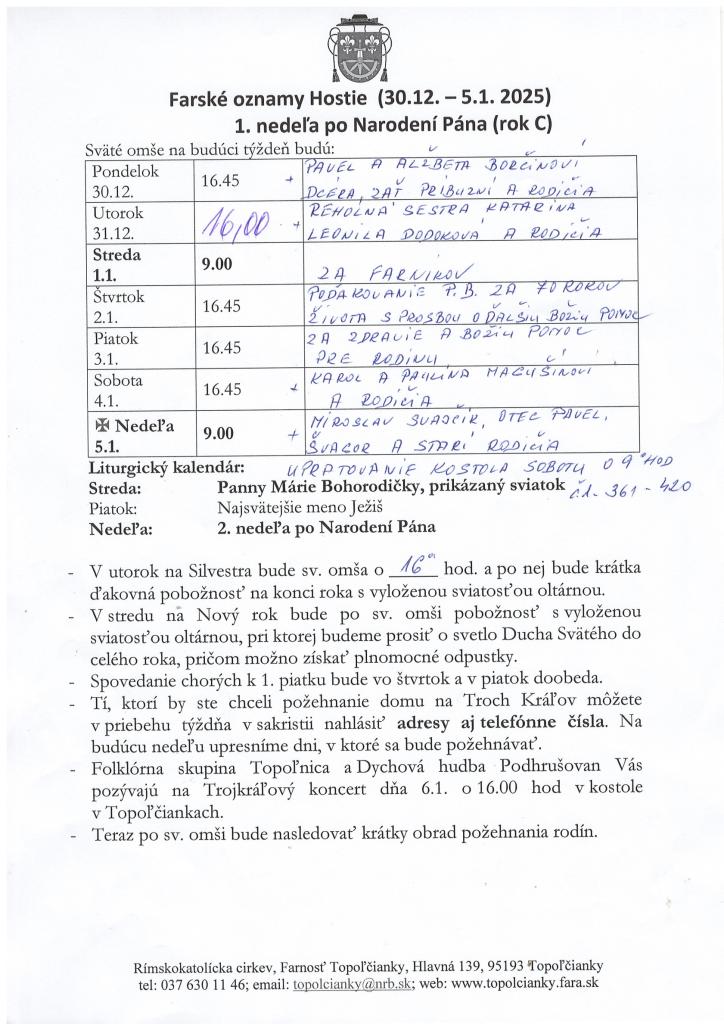 Farské oznamy Hostie (30.12. – 5.1. 2025)
1. nedeľa po Narodení Pána (rok C)
Sväté omše na budúci týždeň budú:
Pondelok 16.45 + PAVEL A ALŽBETA BORČINOVÍ
30.12. DCÉRA, ZAŤ PRÍBUZNÍ A RODIČIA
Utorok 16,00 + REHOĽNÁ SESTRA KATARÍNA
31.12. LEONILA DODOKOVÁ A RODIČIA
Streda 9.00
1.1. ZA FARNÍKOV
Štvrtok 16.45 POĎAKOVANIE P.B. ZA 70 ROKOV
2.1. ŽIVOTA S PROSBOU O ĎALŠIU BOŽIU POMOC
Piatok 16.45 ZA ZDRAVIE A BOŽIU POMOC
3.1. PRE RODINU
Sobota 16.45 + KAROL A PAULÍNA
4.1. A RODIČIA
✠ Nedeľa 9.00 + MIROSLAV ŠVAJCÍR, OTEC PAVEL,
5.1. ŠVAGOR A STARÍ RODIČIA
Liturgický kalendár: UPRATOVANIE KOSTOLA SOBOTU O 9 HOD
Streda: Panny Márie Bohorodičky, prikázaný sviatok č.d. 361 - 420
Piatok: Najsvätejšie meno Ježiš
Nedeľa: 2. nedeľa po Narodení Pána
- V utorok na Silvestra bude sv. omša o 16⁰⁰ hod. a po nej bude krátka
ďakovná pobožnosť na konci roka s vyloženou sviatosťou oltárnou.
- V stredu na Nový rok bude po sv. omši pobožnosť s vyloženou
sviatosťou oltárnou, pri ktorej budeme prosiť o svetlo Ducha Svätého do
celého roka, pričom možno získať plnomocné odpustky.
- Spovedanie chorých k 1. piatku bude vo štvrtok a v piatok doobeda.
- Tí, ktorí by ste chceli požehnanie domu na Troch Kráľov môžete
v priebehu týždňa v sakristii nahlásiť adresy aj telefónne čísla. Na
budúcu nedeľu upresníme dni, v ktoré sa bude požehnávať.
- Folklórna skupina Topoľnica a Dychová hudba Podhrušovan Vás
pozývajú na Trojkráľový koncert dňa 6.1. o 16.00 hod v kostole
v Topoľčiankach.
- Teraz po sv. omši bude nasledovať krátky obrad požehnania rodín.
Rímskokatolícka cirkev, Farnosť Topoľčianky, Hlavná 139, 95193 Topoľčianky
tel: 037 630 11 46; email: topolcianky@nrb.sk; web: www.topolcianky.fara.sk